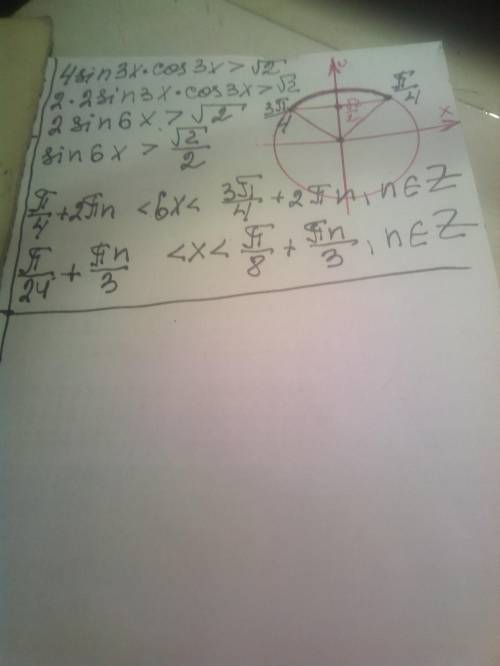 4sin3x·cos3x>√2
2·2sin3x·cos3x>√2
2sin6x>√2
sin6x > √2/2
3π/4
π/4
√2/2
x
y
π/4+2πn <6x< 3π/4+2πn, n∈Z
π/24+πn/3 <x< π/8+πn/3, n∈Z